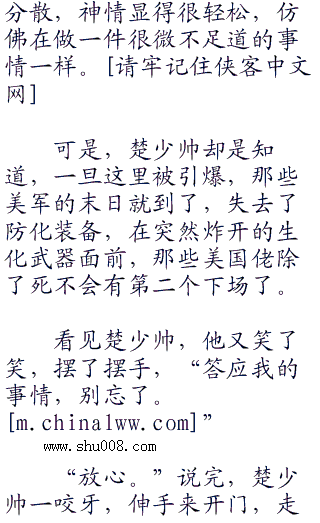 分散，神情显得很轻松，仿
佛在做一件很微不足道的事
情一样。[请牢记住侠客中文
网]
可是，楚少帅却是知
道，一旦这里被引爆，那些
美军的末日就到了，失去了
防化装备，在突然炸开的生
化武器面前，那些美国佬除
了死不会有第二个下场了。
看见楚少帅，他又笑了
笑，摆了摆手，“答应我的
事情，别忘了。
[m.chinalww.com]”
www.shu008.com
“放心。”说完，楚少
帅一咬牙，伸手来开门，走